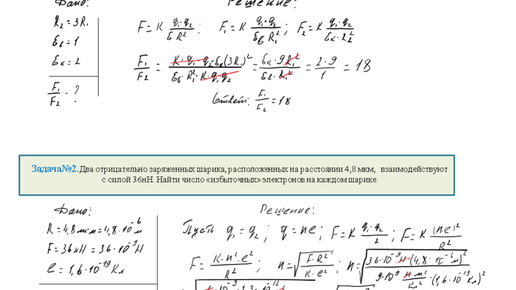 Дано: Решение:
R₂ = 3R₁
ε_в = 1
ε_к = 2
F₁/F₂ - ?
F = K q₁·q₂/εR² ; F₁ = K q₁·q₂/ε_в R₁² ; F₂ = K q₁·q₂/ε_к·R₂²
F₁/F₂ = K·q₁·q₂·ε_к(3R₁)²/ε_в·R₁²·K·q₁q₂ = ε_к·9R₁²/ε_в·R₁² = 2·9/1 = 18
Ответ: F₁/F₂ = 18
Задача№2. Два отрицательно заряженных шарика, расположенных на расстоянии 4,8 мкм, взаимодействуют
с силой 36нН. Найти число «избыточных» электронов на каждом шарике.
Дано: Решение:
R = 4,8 мкм = 4,8·10⁻⁶
F = 36 нН = 36·10⁻⁹ Н
e = 1,6·10⁻¹⁹ Кл
Пусть q₁ = q₂ ; q = ne ; F = K q₁·q₂/2 ; F = K |ne|²/R²
F = K·n²·e²/R² ; n = √(F·R²/K·e²) ; n = √(36·10⁻⁹ Н·(4,8·10⁻⁶ м)²/9·10⁹ Н·м²/Кл²·(1,6·10⁻¹⁹ Кл)²)